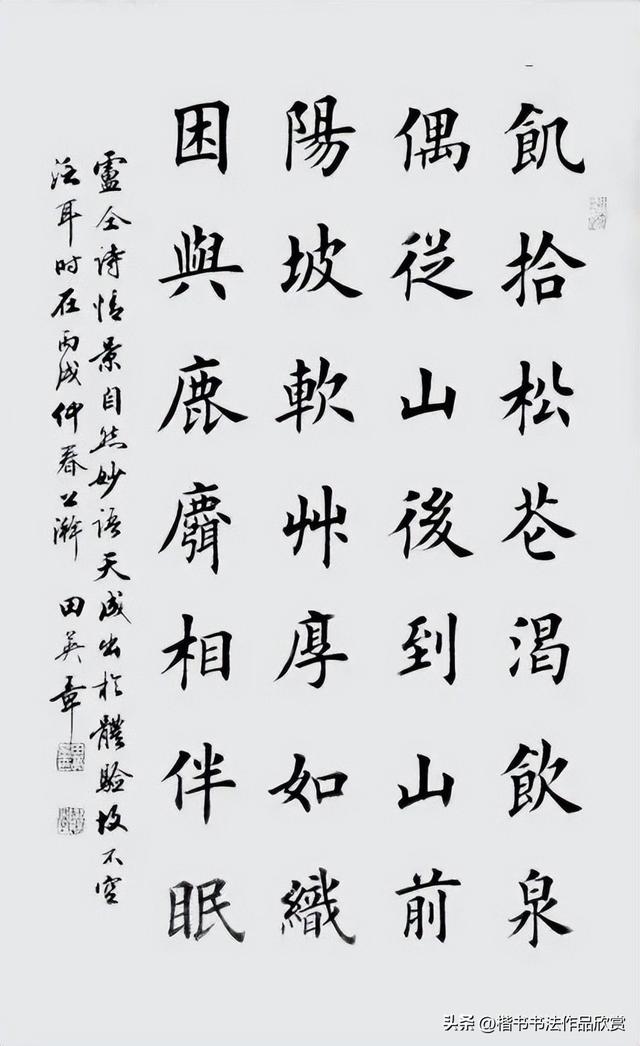 飢拾松花渴飲泉
偶從山後到山前
陽坡軟艸厚如織
困與鹿麛相伴眠
盧仝诗情景自然妙语天成出於體驗故不空
泛耳时在丙戌仲春上澣 田英章
头条 @楷书书法作品欣赏